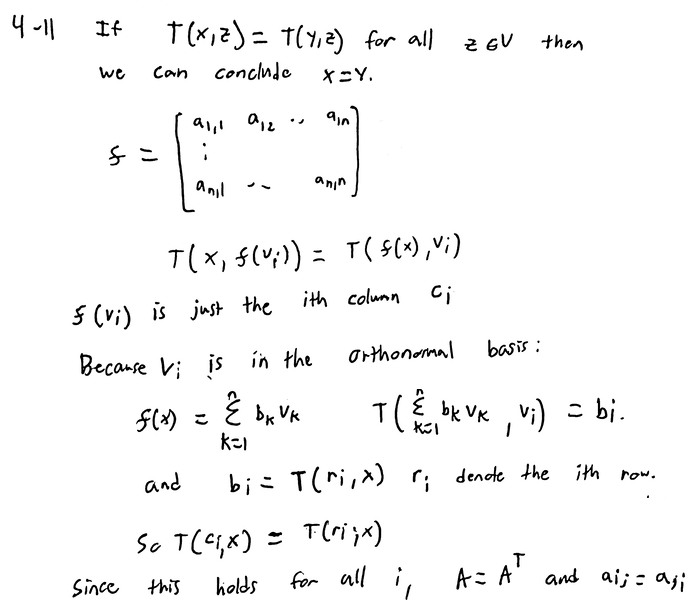 4-11 If T(x,z) = T(y,z) for all z ∈ V then
we can conclude x=y.
f = [ a_{1,1} a_{12} .. a_{1n}
⋮
a_{n,1} .. a_{n,n} ]
T(x, f(v_i)) = T(f(x), v_i)
f(v_i) is just the ith column c_i
Because v_i is in the orthonormal basis:
f(x) = \sum_{k=1}^{n} b_k v_k T(\sum_{k=1}^{n} b_k v_k, v_i) = b_i.
and b_i = T(r_i, x) r_i denote the ith row.
So T(c_i, x) = T(r_i, x)
Since this holds for all i, A = A^T and a_{ij} = a_{ji}